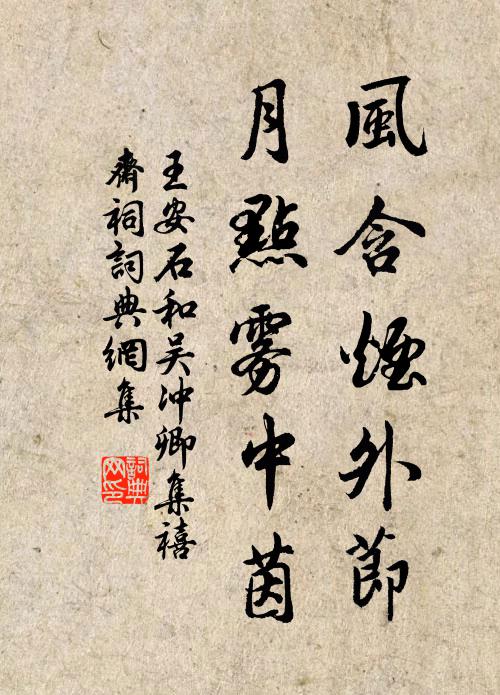 風含煙外節
月點霧中茵
王安石和吴冲卿集禧
齋祠詞典網集
詞典
网印